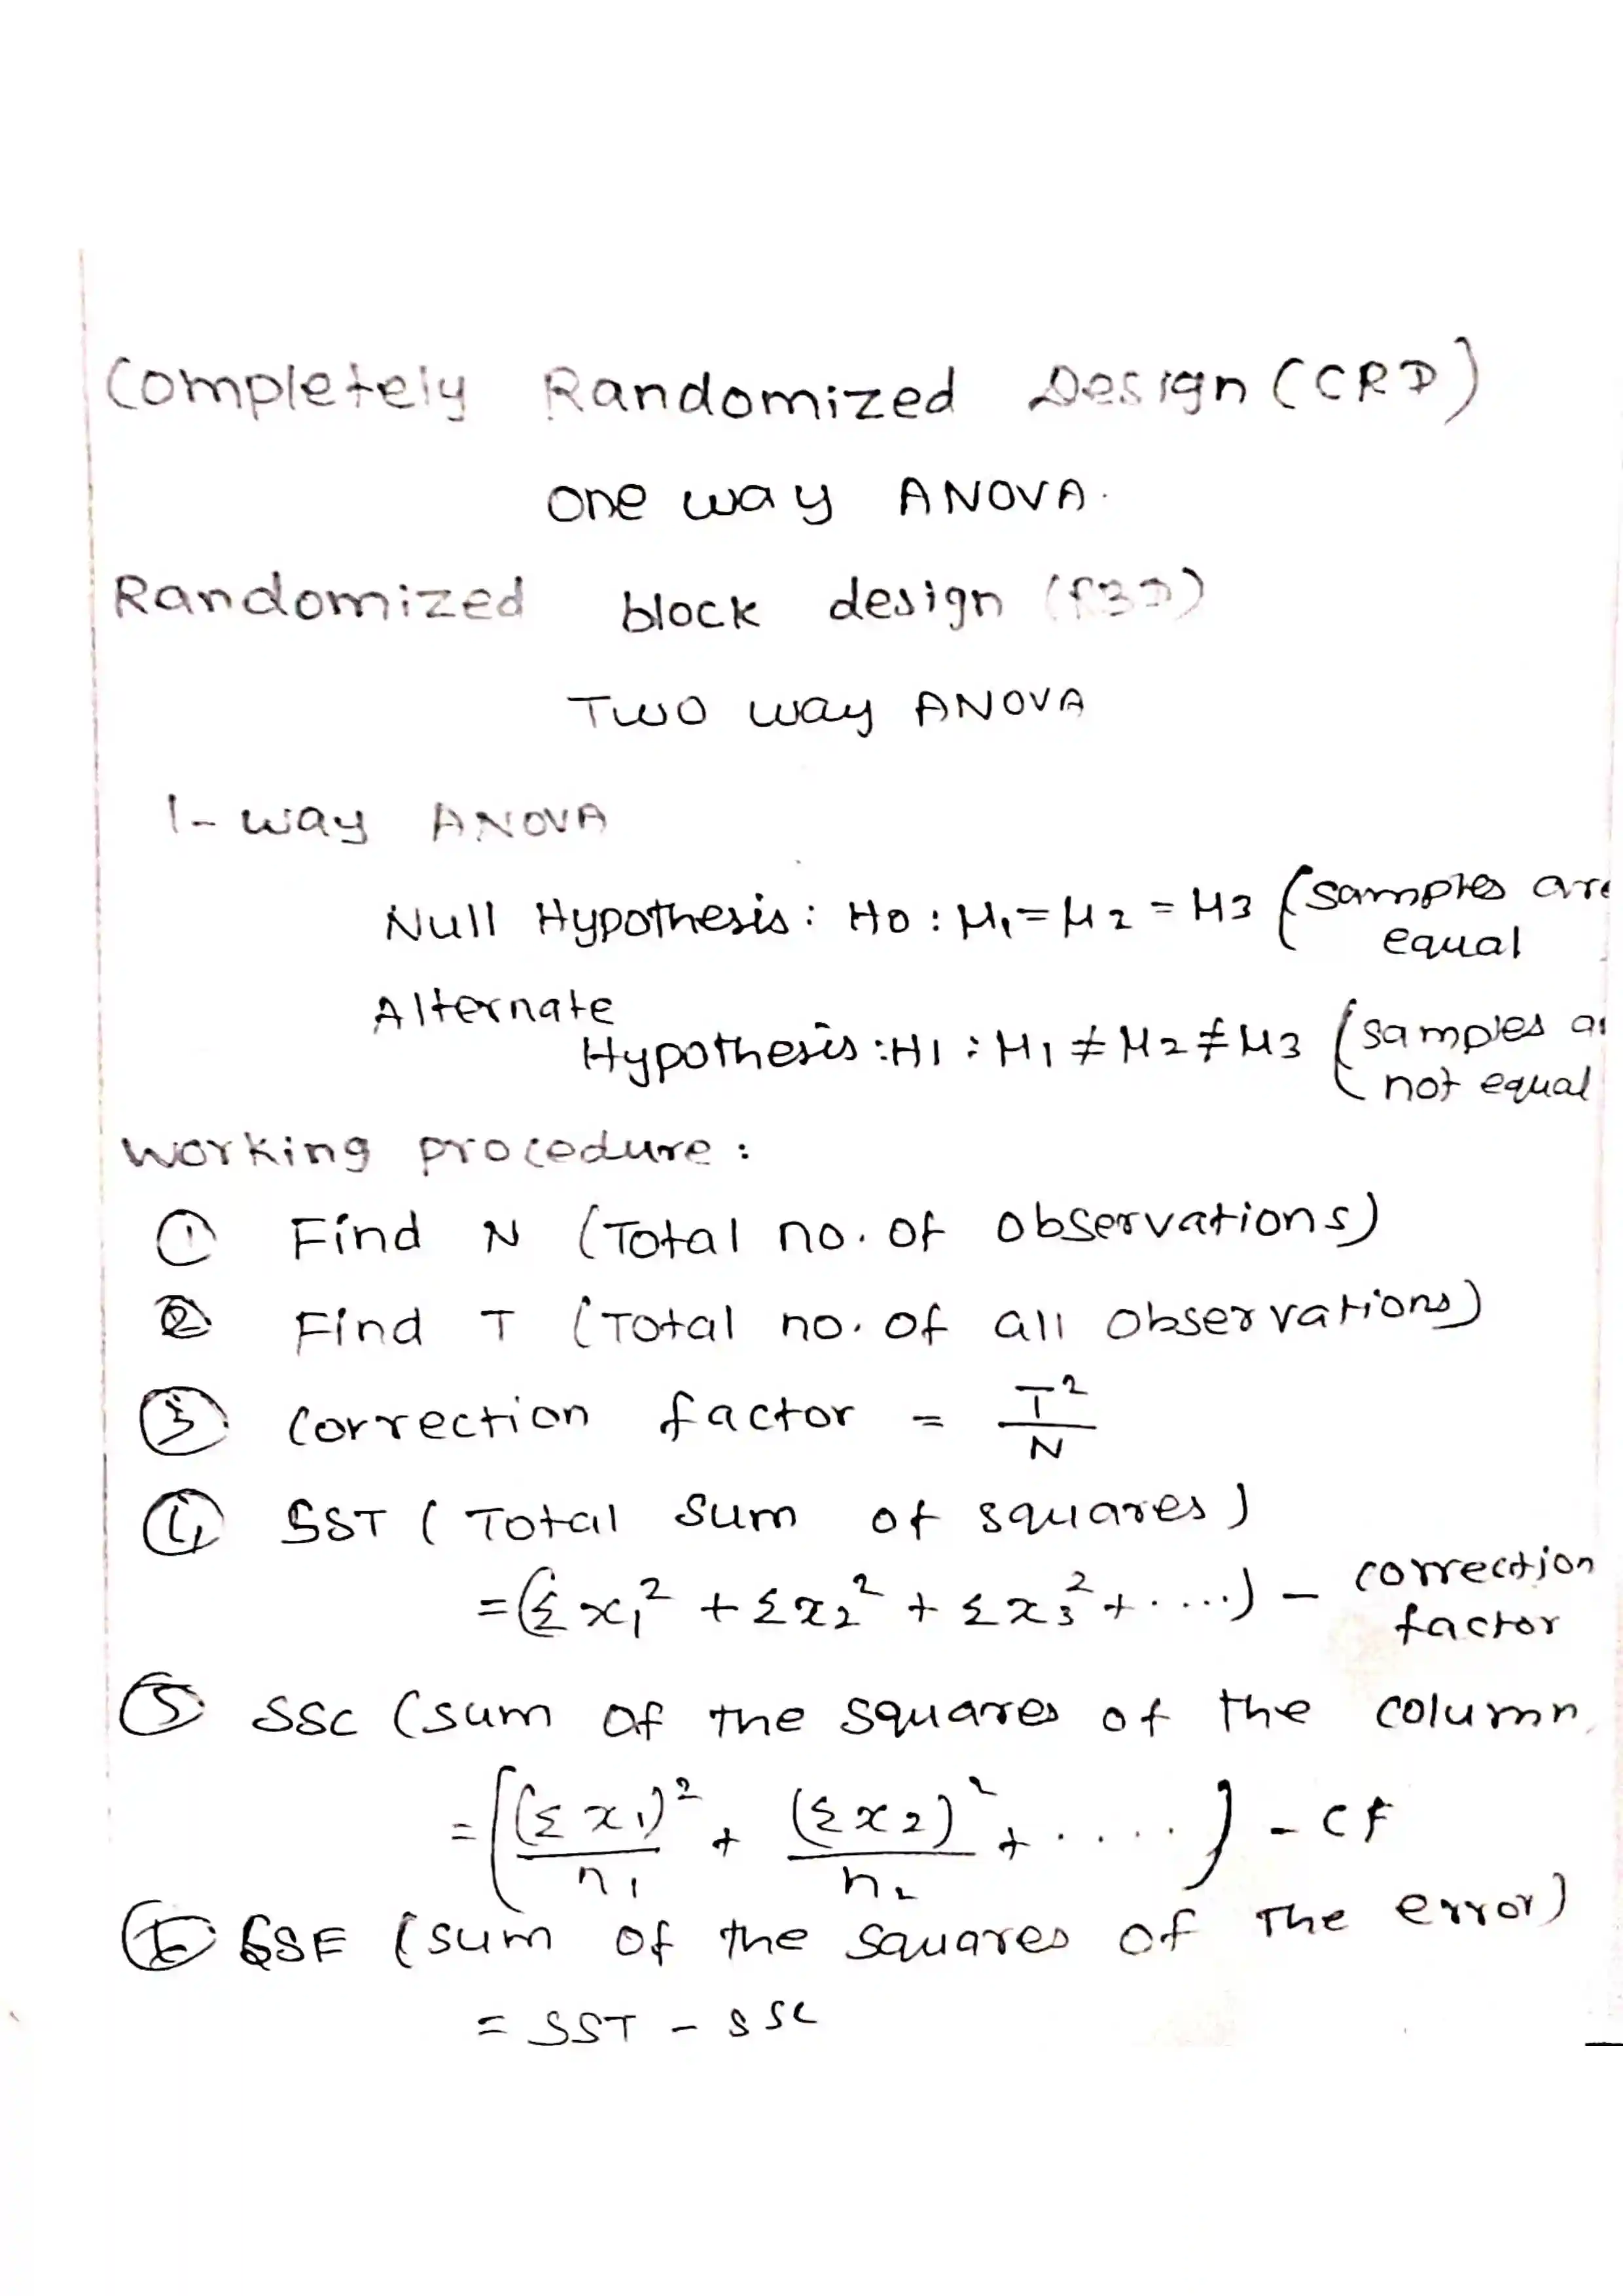 Completely Randomized Design (CRD)
One way ANOVA.
Randomized block design (RBD)
Two way ANOVA
1-way ANOVA
Null Hypothesis: H0 : μ1 = μ2 = μ3 (samples are
equal
Alternate
Hypothesis: H1 : μ1 ≠ μ2 ≠ μ3 (samples
not equal
Working procedure:
① Find N (Total no. of observations)
② Find T (Total no. of all observations)
③ Correction factor = T²/N
④ SST (Total sum of squares)
= (Σx₁² + Σx₂² + Σx₃² + ....) - correction
factor
⑤ SSC (sum of the squares of the column
= ((Σx₁)²/n₁ + (Σx₂)²/n₂ + .....) - CF
⑥ SSE (sum of the squares of the error)
= SST - SSC